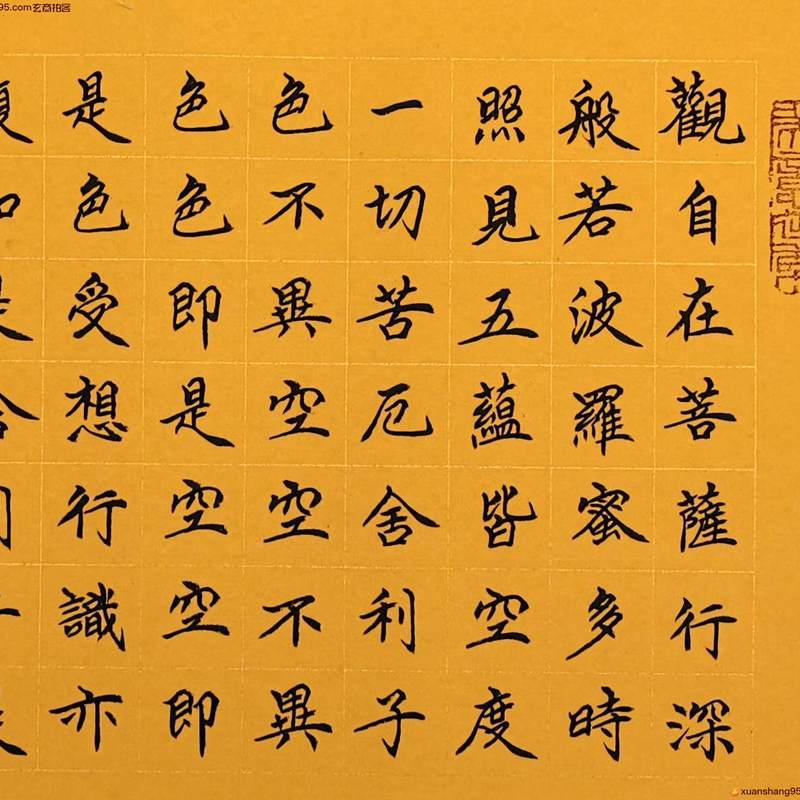 觀自在菩薩行深
般若波羅蜜多時
照見五蘊皆空度
一切苦厄舍利子
色不異空空不異
色色即是空空即
是色受想行識亦
復
95.com玄商拍客
xuanshang95